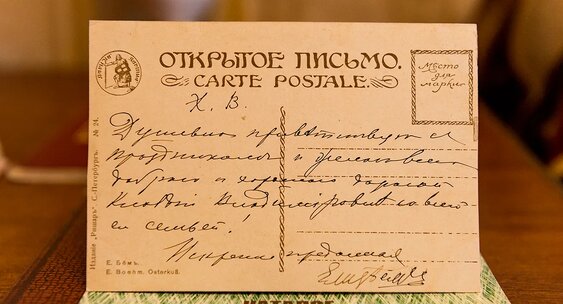 ОТКРЫТОЕ ПИСЬМО.
CARTE POSTALE.
Место
для
марки
Х. В.
Душевно приветствую с
праздником и желаю всего
доброго и хорошего дорогой
Клавдии Владимировне со всей
ее семьей!
Искренно преданная
Изданіе „Ришаръ“. С.-Петербургъ. № 24.
Е. Бёмъ.
E. Boehm. Osterkuß.